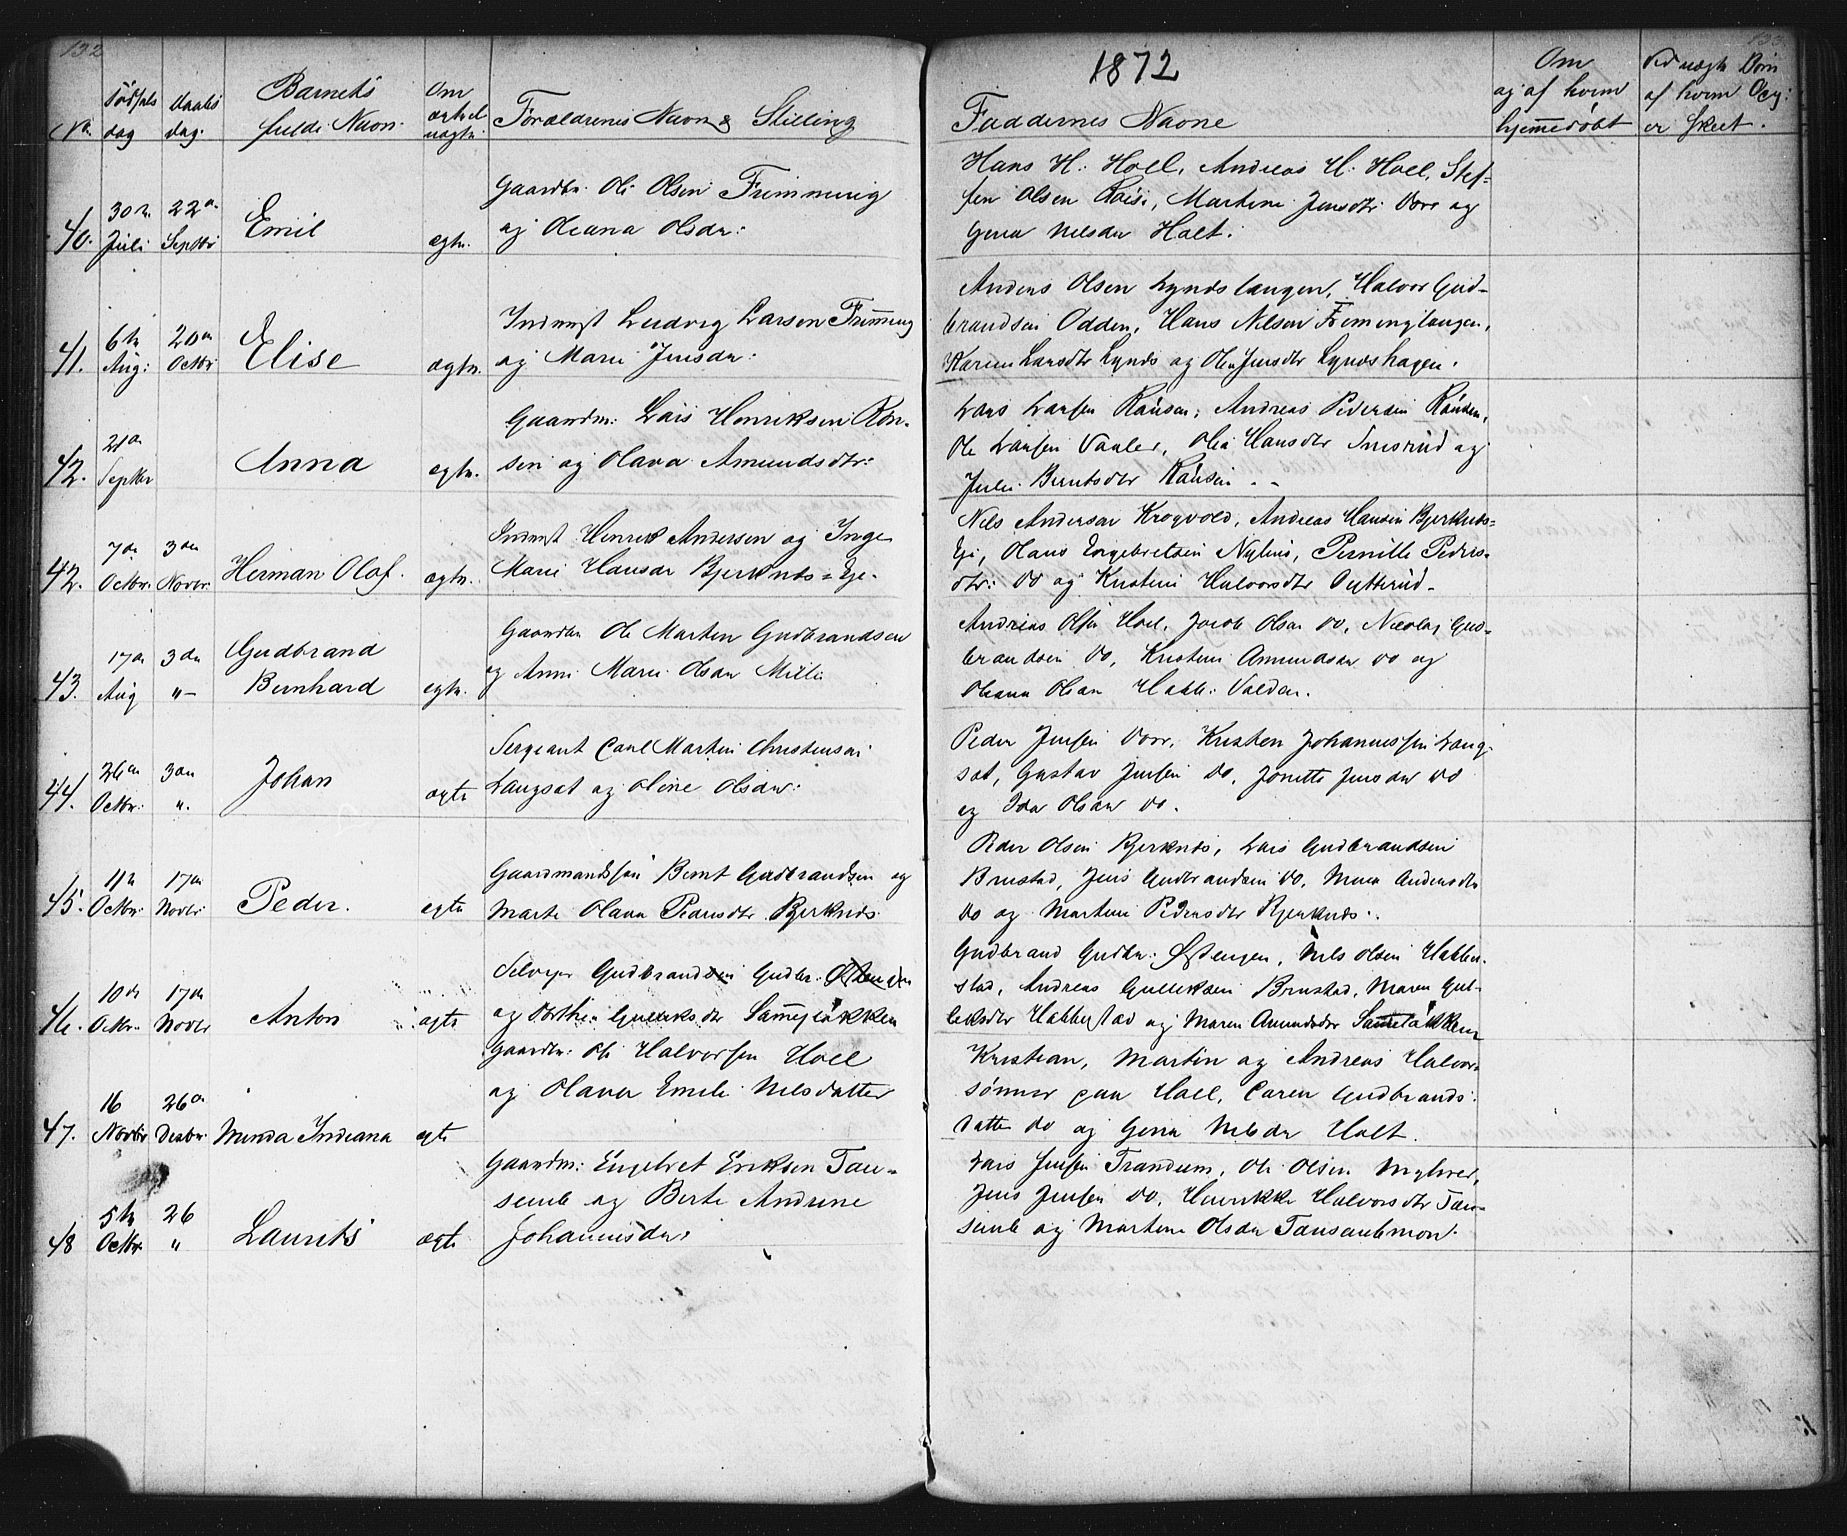 132
1872
No.
Fødsels dag
Daabs dag.
Barnets fulde Navn.
Om ægte el. uægte.
Forældrenes Navn & Stilling
Faddernes Navne
Om og af hvem hjemmedøbt
40.
30te Juli
22de Septbr
Emil
egte.
Gaardbr. Ole Olsen Frimmerig
og Oleana Olsdr:
Hans H. Hoel, Andreas H. Hoel, Stef-
fen Olsen, Martine Jensdtr Dorr og
Gena Nilsdr Holt.
41.
6te Aug:
20de Octbr
Elise
ægte.
Inderst Ludvig Larsen
og Marie Jensdr:
Anders Olsen Lyndshaugen, Halvor Gud-
brandsen Odden, Hans Nilsen
Karen Larsdtr Lynds og Olea Jensdtr Lyndshagen.
42.
21de Septbr
Anna
egte.
Gaardm: Lars Henriksen Røn-
sen og Olava Amundsdtr:
Lars Larsen Rønsen, Andreas Pedersen Rønsen,
Ole Larsen Vaaler, Olea Hansdtr Snesrud og
Julie Berntsdtr Rønsen - -
42.
7de Octbr.
3die Novbr.
Herman Olaf.
ægte.
Inderst Henrik Andersen og Inge
Marie Hansdr Bjerknes-Eje.
Nils Andersen Krogvold, Andreas Hansen Bjerknes-
Eje, Hans Engebretsen Nylius, Pernille Peders-
dtr: do og Kristine Halvorsdtr Putterud -
43.
17de Aug
3die " -
Gudbrand
Bernhard
egte.
Gaardbr Ole Martin Gudbrandsen
og Anne Marie Olsdr Mille.
Andreas Olsen Hoel, Jacob Olsen do, Nicolay Gud-
brandsen do, Kristine Amundsdr do og
Oleana Olsdr
44.
26de Octbr:
3die ".
Johan
ægte
Sergeant Carl Martin Christensen
Langsæt og Oline Olsdr:
Peder Jensen Dorr, Kristen Johannessen Lang-
sæt, Gustav Jensen do, Jonette Jensdr do
og Ida Olsdr do.
45.
11te Octbr.
17de Novbr.
Peder.
egte
Gaardmandssøn Bernt Gudbrandsen og
Marte Olava Pedersdtr Bjerknes.
Peder Olsen Bjerknes, Lars Gudbrandsen
Brustad, Jens Gudbrandsen do, Maren Andersdtr
do og Martine Pedersdtr Bjerknes.
46.
10de Octbr.
17de Novbr
Anton
ægte
Selvejer Gudbrandsen Gudbr.
og Dorthea Gulliksdtr
Gudbrand Gudbr. Østengen, Nils Olsen Habber-
stad, Andreas Gulliksen Brustad, Maren Gul-
liksdtr Habberstad og Maren Amundsdr
47.
16 Novbr
26de Decbr.
Minda Indeana
egte
Gaardbr: Ole Halvorsen Hoel
og Olava Emilie Nilsdatter
Kristian, Martin og Andreas Halvor-
sønner paa Hoel, Caren Gudbrands-
datter do og Gena Nilsdr Holt.
48
5te Octbr.
26 "
Laurits
ægte
Gaardm: Engebret Eriksen Tan-
semb og Berte Andrine
Johannesdr.
Lars Jensen Trandum, Ole Olsen Myhrer,
Jens Jensen do, Henrikke Halvorsdtr Tan-
semb og Martine Olsdr Tansembmon.